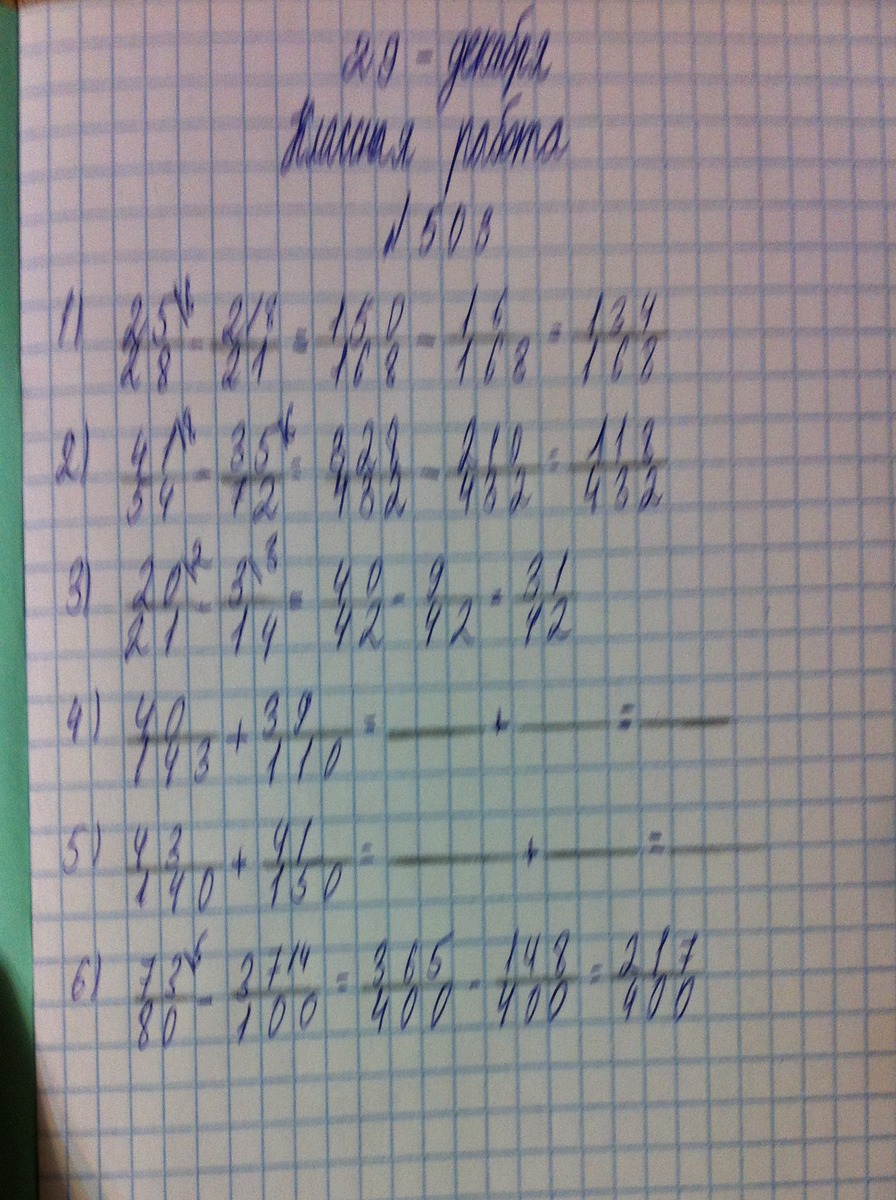 29 = декабря
Классная работа
№ 508
1) 25\6/28 - 2\8/21 = 150/168 - 16/168 = 134/168
2) 41\8/54 - 35\6/72 = 328/432 - 210/432 = 118/432
3) 20\2/21 - 3\3/14 = 40/42 - 9/42 = 31/42
4) 40/143 + 39/110 = — + — = —
5) 43/140 + 41/150 = — + — = —
6) 73\5/80 - 37\4/100 = 365/400 - 148/400 = 217/400